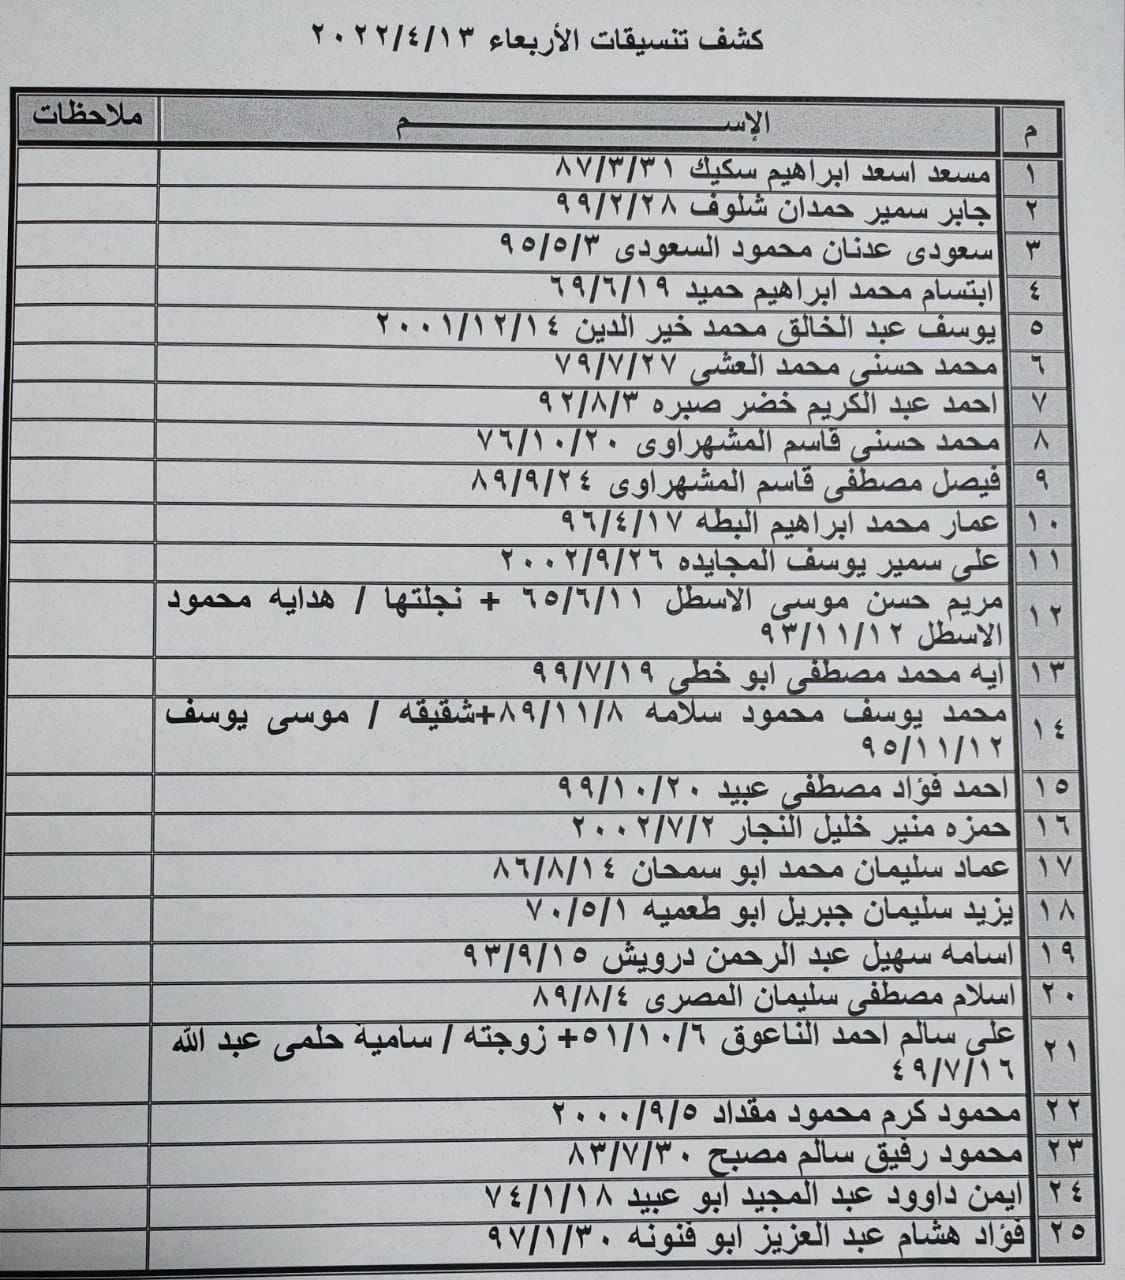 كشف تنسيقات الأربعاء ٢٠٢٢/٤/١٣
م الإســـــــــم ملاحظات
١ مسعد اسعد ابراهيم سكيك ٨٧/٣/٣١
٢ جابر سمير حمدان شلوف ٩٩/٢/٢٨
٣ سعودى عدنان محمود السعودى ٩٥/٥/٣
٤ ابتسام محمد ابراهيم حميد ٦٩/٦/١٩
٥ يوسف عبد الخالق محمد خير الدين ٢٠٠١/١٢/١٤
٦ محمد حسنى محمد العشى ٧٩/٧/٢٧
٧ احمد عبد الكريم خضر صبره ٩٢/٨/٣
٨ محمد حسني قاسم المشهراوى ٧٦/١٠/٢٠
٩ فيصل مصطفى قاسم المشهراوى ٨٩/٩/٢٤
١٠ عمار محمد ابراهيم البطه ٩٦/٤/١٧
١١ على سمير يوسف المجايده ٢٠٠٢/٩/٢٦
١٢ مريم حسن موسى الاسطل ٦٥/٦/١١ + نجلتها / هدايه محمود
الاسطل ٩٣/١١/١٢
١٣ ايه محمد مصطفى ابو خطى ٩٩/٧/١٩
١٤ محمد يوسف محمود سلامه ٨٩/١١/٨+شقيقه / موسى يوسف
٩٥/١١/١٢
١٥ احمد فؤاد مصطفى عبيد ٩٩/١٠/٢٠
١٦ حمزه منير خليل النجار ٢٠٠٢/٧/٢
١٧ عماد سليمان محمد ابو سمحان ٨٦/٨/١٤
١٨ يزيد سليمان جبريل ابو طعميه ٧٠/٥/١
١٩ اسامه سهيل عبد الرحمن درويش ٩٣/٩/١٥
٢٠ اسلام مصطفى سليمان المصرى ٨٩/٨/٤
٢١ على سالم احمد الناعوق ٥١/١٠/٦+ زوجته / سامية حلمى عبد الله
٤٩/٧/١٦
٢٢ محمود كرم محمود مقداد ٢٠٠٠/٩/٥
٢٣ محمود رفيق سالم مصبح ٨٣/٧/٣٠
٢٤ ايمن داوود عبد المجيد ابو عبيد ٧٤/١/١٨
٢٥ فؤاد هشام عبد العزيز ابو فنونه ٩٧/١/٣٠